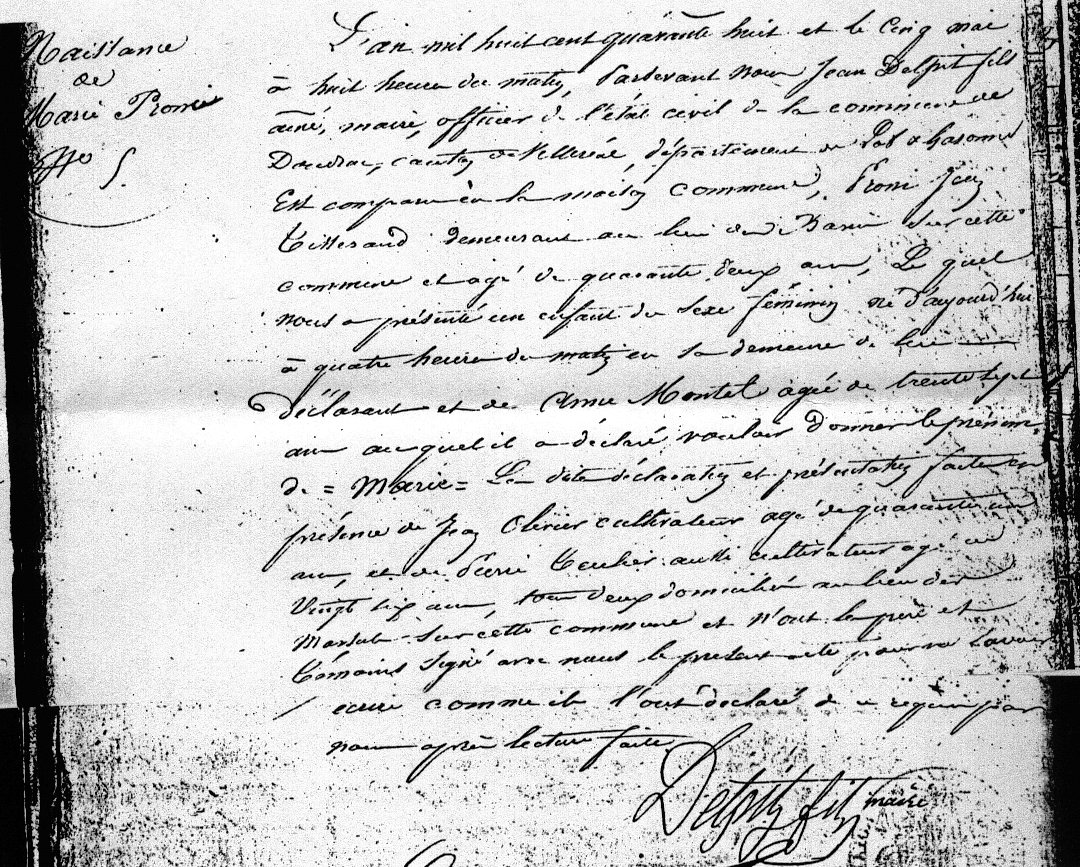 Naissance
de
Marie
N° 5
L'an mil huit cent quarante huit et le cinq mai
à huit heures du matin, pardevant nous Jean Delpit fils
ainé, maire, officier de l'état civil de la commune de
canton de Villeréal, département de Lot & Garonne
Est comparu à la maison commune, Jean
tisserand demeurant au lieu de sur cette
commune et agé de quarante deux ans, Le quel
nous a présenté un enfant du sexe féminin né d'aujourd'hui
à quatre heures du matin en sa demeure de lui
déclarant et de Anne Montel agée de trente sept
ans au quel il a déclaré vouloir donner le prénom
de = Marie = La dite déclaration et présentation faite en
présence de Jean cultivateur agé de quarante un
ans, et de Pierre aussi cultivateur agé de
vingt six ans, tous deux domiciliés au lieu de
sur cette commune et n'ont le père et
témoins signé avec nous le présent acte pour ne savoir
écrire comme ils l'ont déclaré de ce requis par
nous après lecture faite.
Delpit fils maire